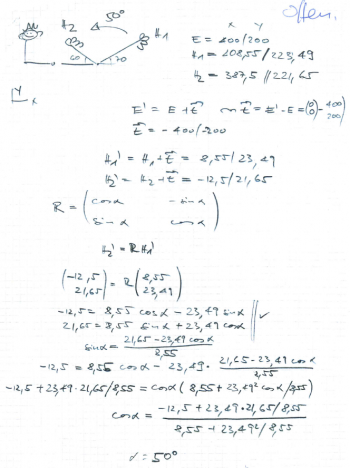 offen.
50°
H₂ H₁
60° 70
x y
E = 400/200
H₁ = 408,55/223,49
H₂ = 387,5//221,65
y
x
E' = E + t⃗ ~ t⃗ = E' - E = (0 0) - (400 200)
t⃗ = -400/-200
H₁' = H₁ + t⃗ = 8,55/23,49
H₂' = H₂ + t⃗ = -12,5/21,65
R = (cos α - sin α
sin α cos α)
H₂' = R H₁'
(-12,5 21,65) = R (8,55 23,49)
-12,5 = 8,55 cos α - 23,49 sin α
21,65 = 8,55 sin α + 23,49 cos α
sin α = (21,65 - 23,49 cos α) / 8,55
-12,5 = 8,55 cos α - 23,49 · (21,65 - 23,49 cos α) / 8,55
-12,5 + 23,49 · 21,65/8,55 = cos α (8,55 + 23,49² cos α/8,55)
cos α = (-12,5 + 23,49 · 21,65/8,55) / (8,55 + 23,49²/8,55)
α = 50°